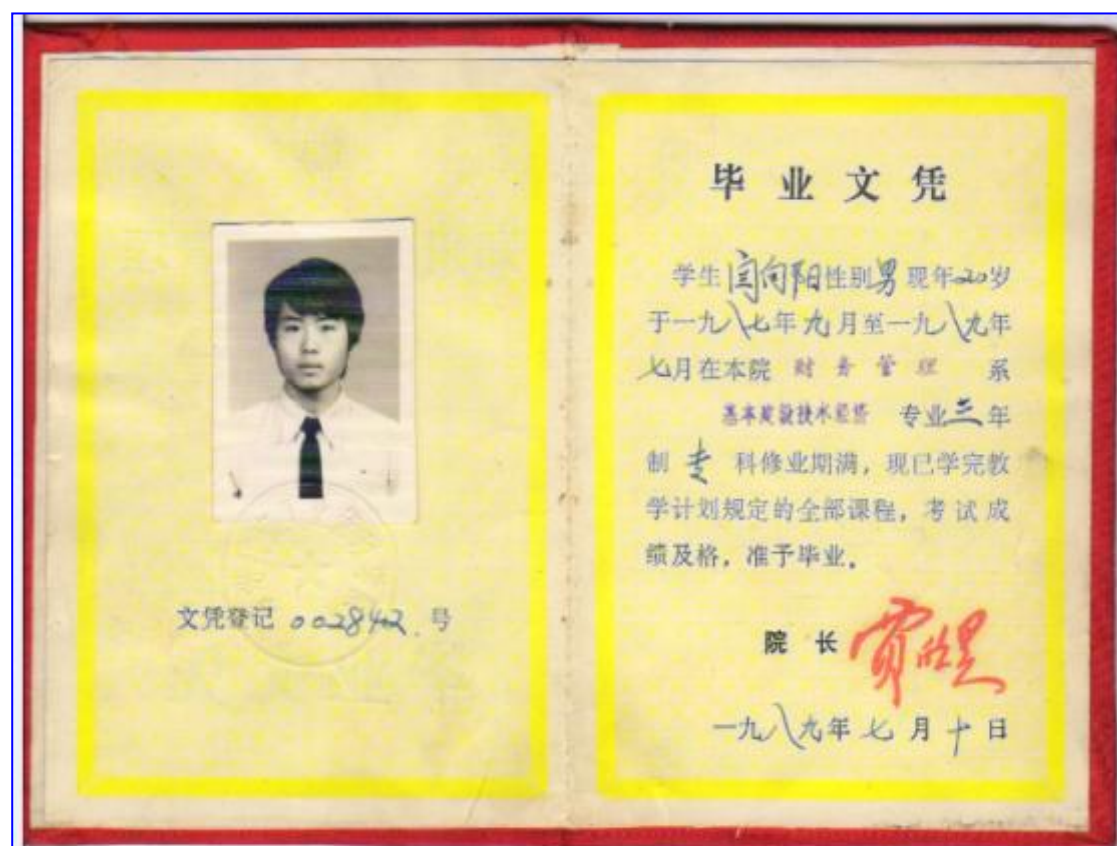 文凭登记 002842 号
毕业文凭
学生闫向阳性别男现年20岁
于一九八七年九月至一九八九年
七月在本院 财务管理 系
基本建设技术经济 专业三年
制 专 科修业期满，现已学完教
学计划规定的全部课程，考试成
绩及格，准予毕业。
院 长
一九八九年七月十日